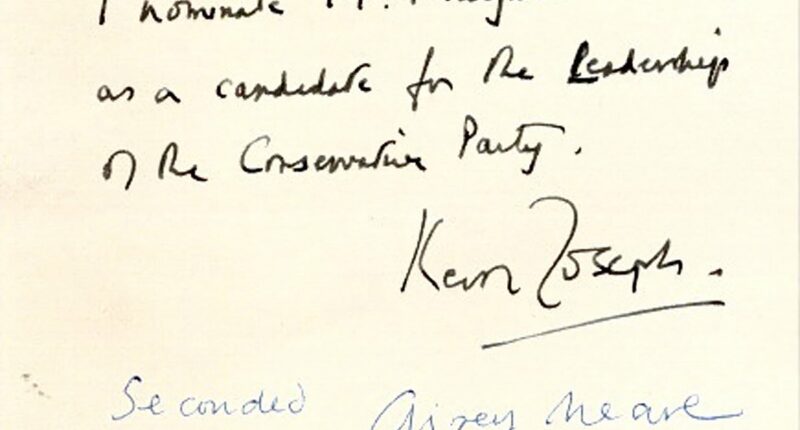 I nominate M.
as a candidate for the Leadership
of the Conservative Party.
Keith Joseph.
Seconded Airey Neave